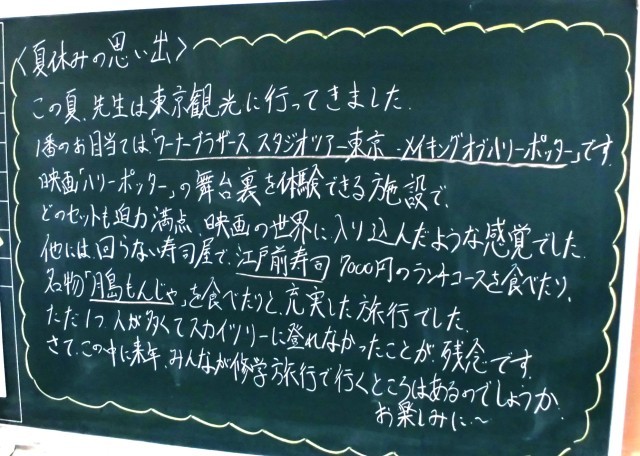 〈夏休みの思い出〉
この夏、先生は東京観光に行ってきました。
1番のお目当ては「ワーナーブラザース スタジオツアー東京 - メイキングオブハリーポッター」です。
映画「ハリーポッター」の舞台裏を体験できる施設で、
どのセットも迫力満点、映画の世界に入り込んだような感覚でした。
他には、回らない寿司屋で、江戸前寿司 7000円のランチコースを食べたり、
名物「月島もんじゃ」を食べたりと、充実した旅行でした。
ただ1つ、人が多くてスカイツリーに登れなかったことが、残念です。
さて、この中に来年、みんなが修学旅行で行くところはあるのでしょうか。
お楽しみに〜